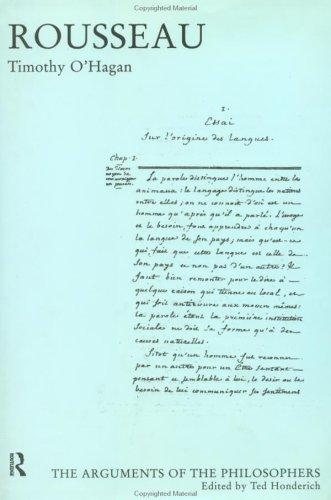 ROUSSEAU
Timothy O'Hagan
1.
Essai
Sur l'origine des langues.
Chap. I.
La parole distingue l'homme entre les
animaux: le langage distingue les nations
entre elles; on ne connoit d'où est un
homme qu'après qu'il a parlé. L'usage
et le besoin, font apprendre à chaqu'un
la langue de son pays; mais qu'est-ce
qui fait que cette langue est celle de
son pays et non pas d'un autre? Il
faut bien remonter pour le dire à
quelque raison qui tienne au local, et
qui soit antérieure aux mœurs mêmes:
la parole étant la première institution
sociale ne doit sa forme qu'à des
causes naturelles.
Sitot qu'un homme fut reconnu
par un autre pour un Etre sentant
pensant et semblable à lui, le desir ou le
besoin de lui communiquer ses sentimens
R
ROUTLEDGE
THE ARGUMENTS OF THE PHILOSOPHERS
Edited by Ted Honderich